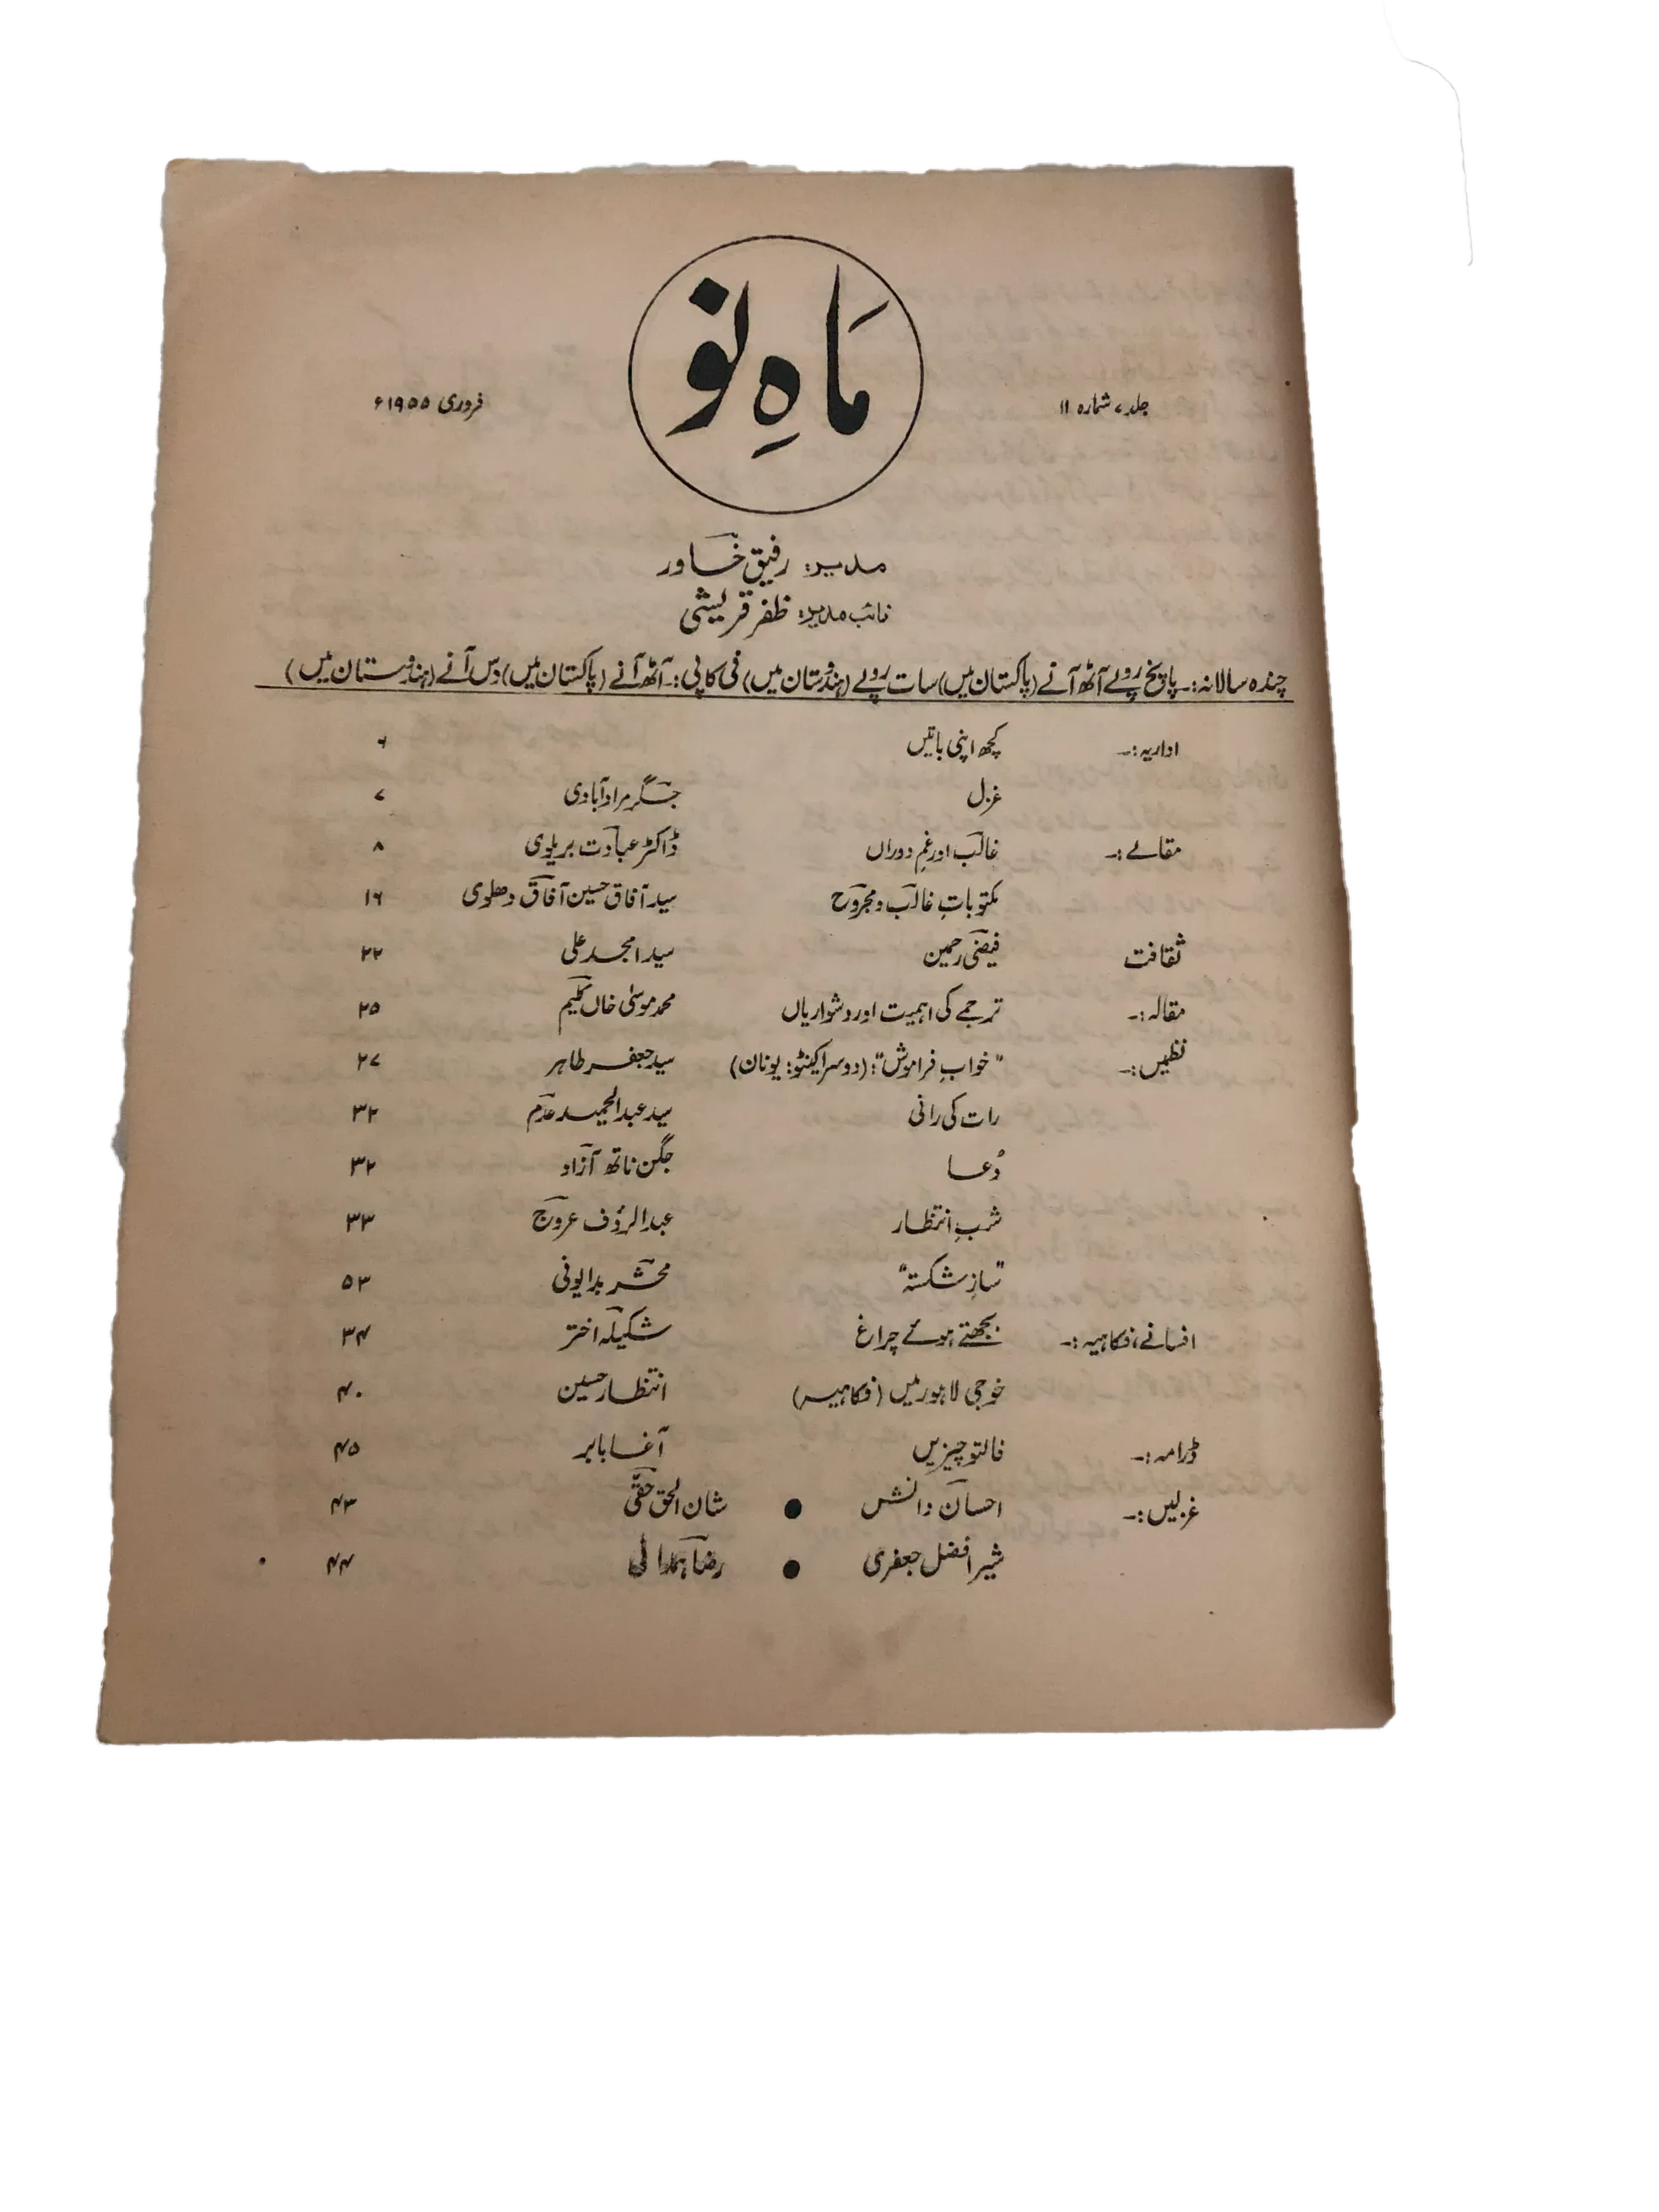 جلد ۷ شمارہ ۱۱
مَاہِ نو
فروری ۱۹۵۵ء
مدیر: رفیق خاور
نائب مدیر: ظفر قریشی
چندہ سالانہ:۔ پانچ روپے آٹھ آنے (پاکستان میں) سات روپے (ہندوستان میں) فی کاپی:۔ آٹھ آنے (پاکستان میں) دس آنے (ہندوستان میں)
اداریہ:۔ کچھ اپنی باتیں ۶
غزل جگر مرادآبادی ۷
مقالے:۔ غالب اور غمِ دوراں ڈاکٹر عبادت بریلوی ۸
مکتوباتِ غالب و مجروح سید آفاق حسین آفاق دھلوی ۱۶
ثقافت فیضی رحمین سید امجد علی ۲۲
مقالہ:۔ ترجمے کی اہمیت اور دشواریاں محمد موسیٰ خاں کلیم ۲۵
نظمیں:۔ "خوابِ فراموش": (دوسرا کینٹو: یونان) سید جعفر طاہر ۲۷
رات کی رانی سید عبدالحمید عدم ۳۲
دُعا جگن ناتھ آزاد ۳۲
شبِ انتظار عبدالرؤف عروج ۳۳
"سازِ شکستہ" محشر بدایونی ۵۳
افسانے، فکاہیہ:۔ بجھتے ہوئے چراغ شکیلہ اختر ۳۴
خوجی لاہور میں (فکاہیہ) انتظار حسین ۴۰
ڈرامہ:۔ فالتو چیزیں آغا بابر ۴۵
غزلیں:۔ احسان دانش ● شان الحق حقّی ۴۳
شیر افضل جعفری ● رضا ہمدانی ۴۴